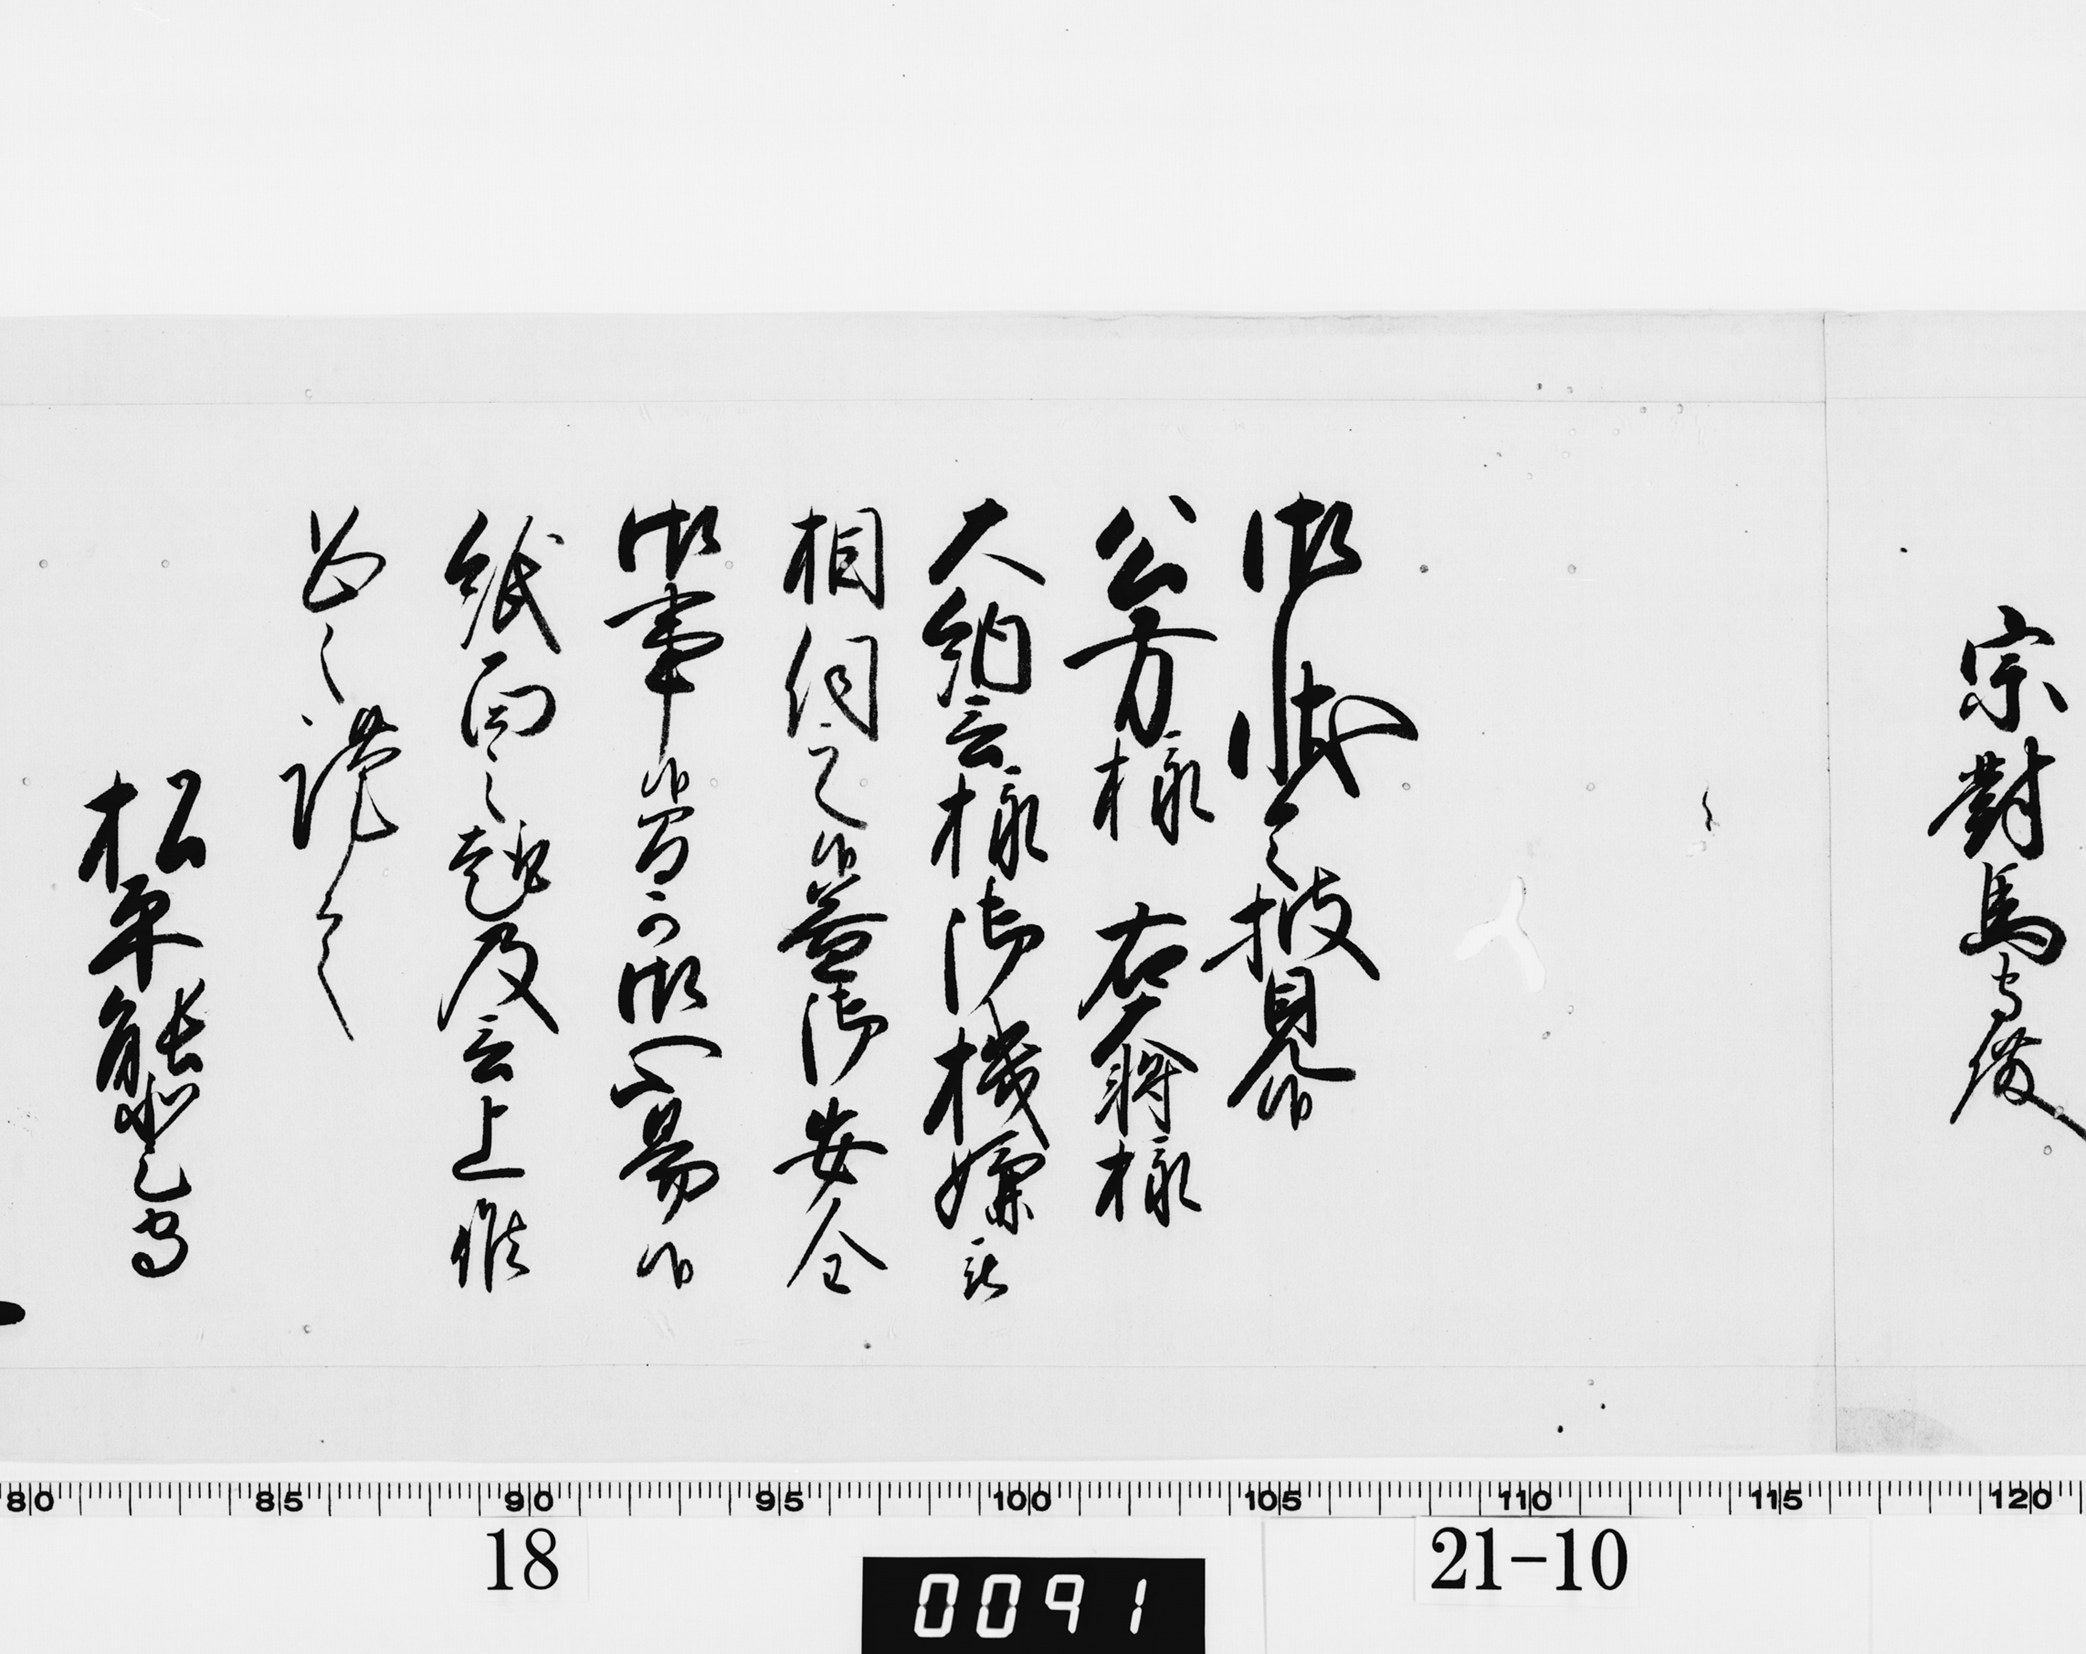 宗對馬守殿
御状令披見候
公方様 右大将様
大納言様御機嫌被
相伺之候益御安全
御事候間可御心易候
紙面之趣及言上候
恐々謹言
松平能登守
80 85 90 95 100 105 110 115 120
18
21-10
0091